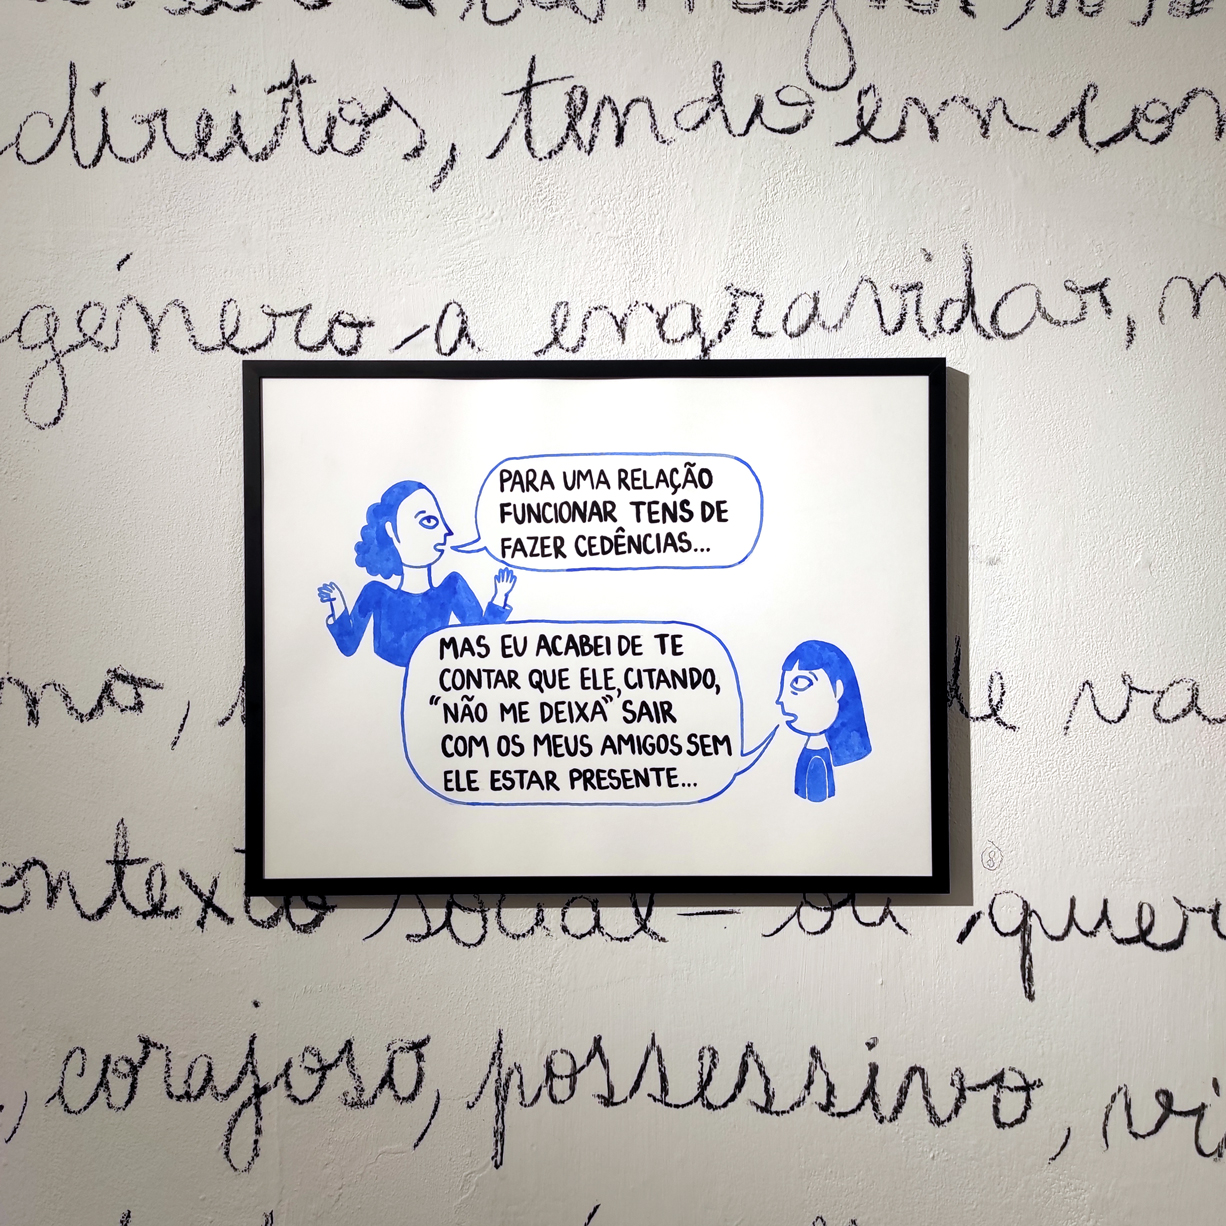 direitos, tendo em con
género a engravidar,
PARA UMA RELAÇÃO
FUNCIONAR TENS DE
FAZER CEDÊNCIAS...
MAS EU ACABEI DE TE
CONTAR QUE ELE, CITANDO,
"NÃO ME DEIXA" SAIR
COM OS MEUS AMIGOS SEM
ELE ESTAR PRESENTE...
8
contexto social — ou quer
, corajoso, possessivo, vi